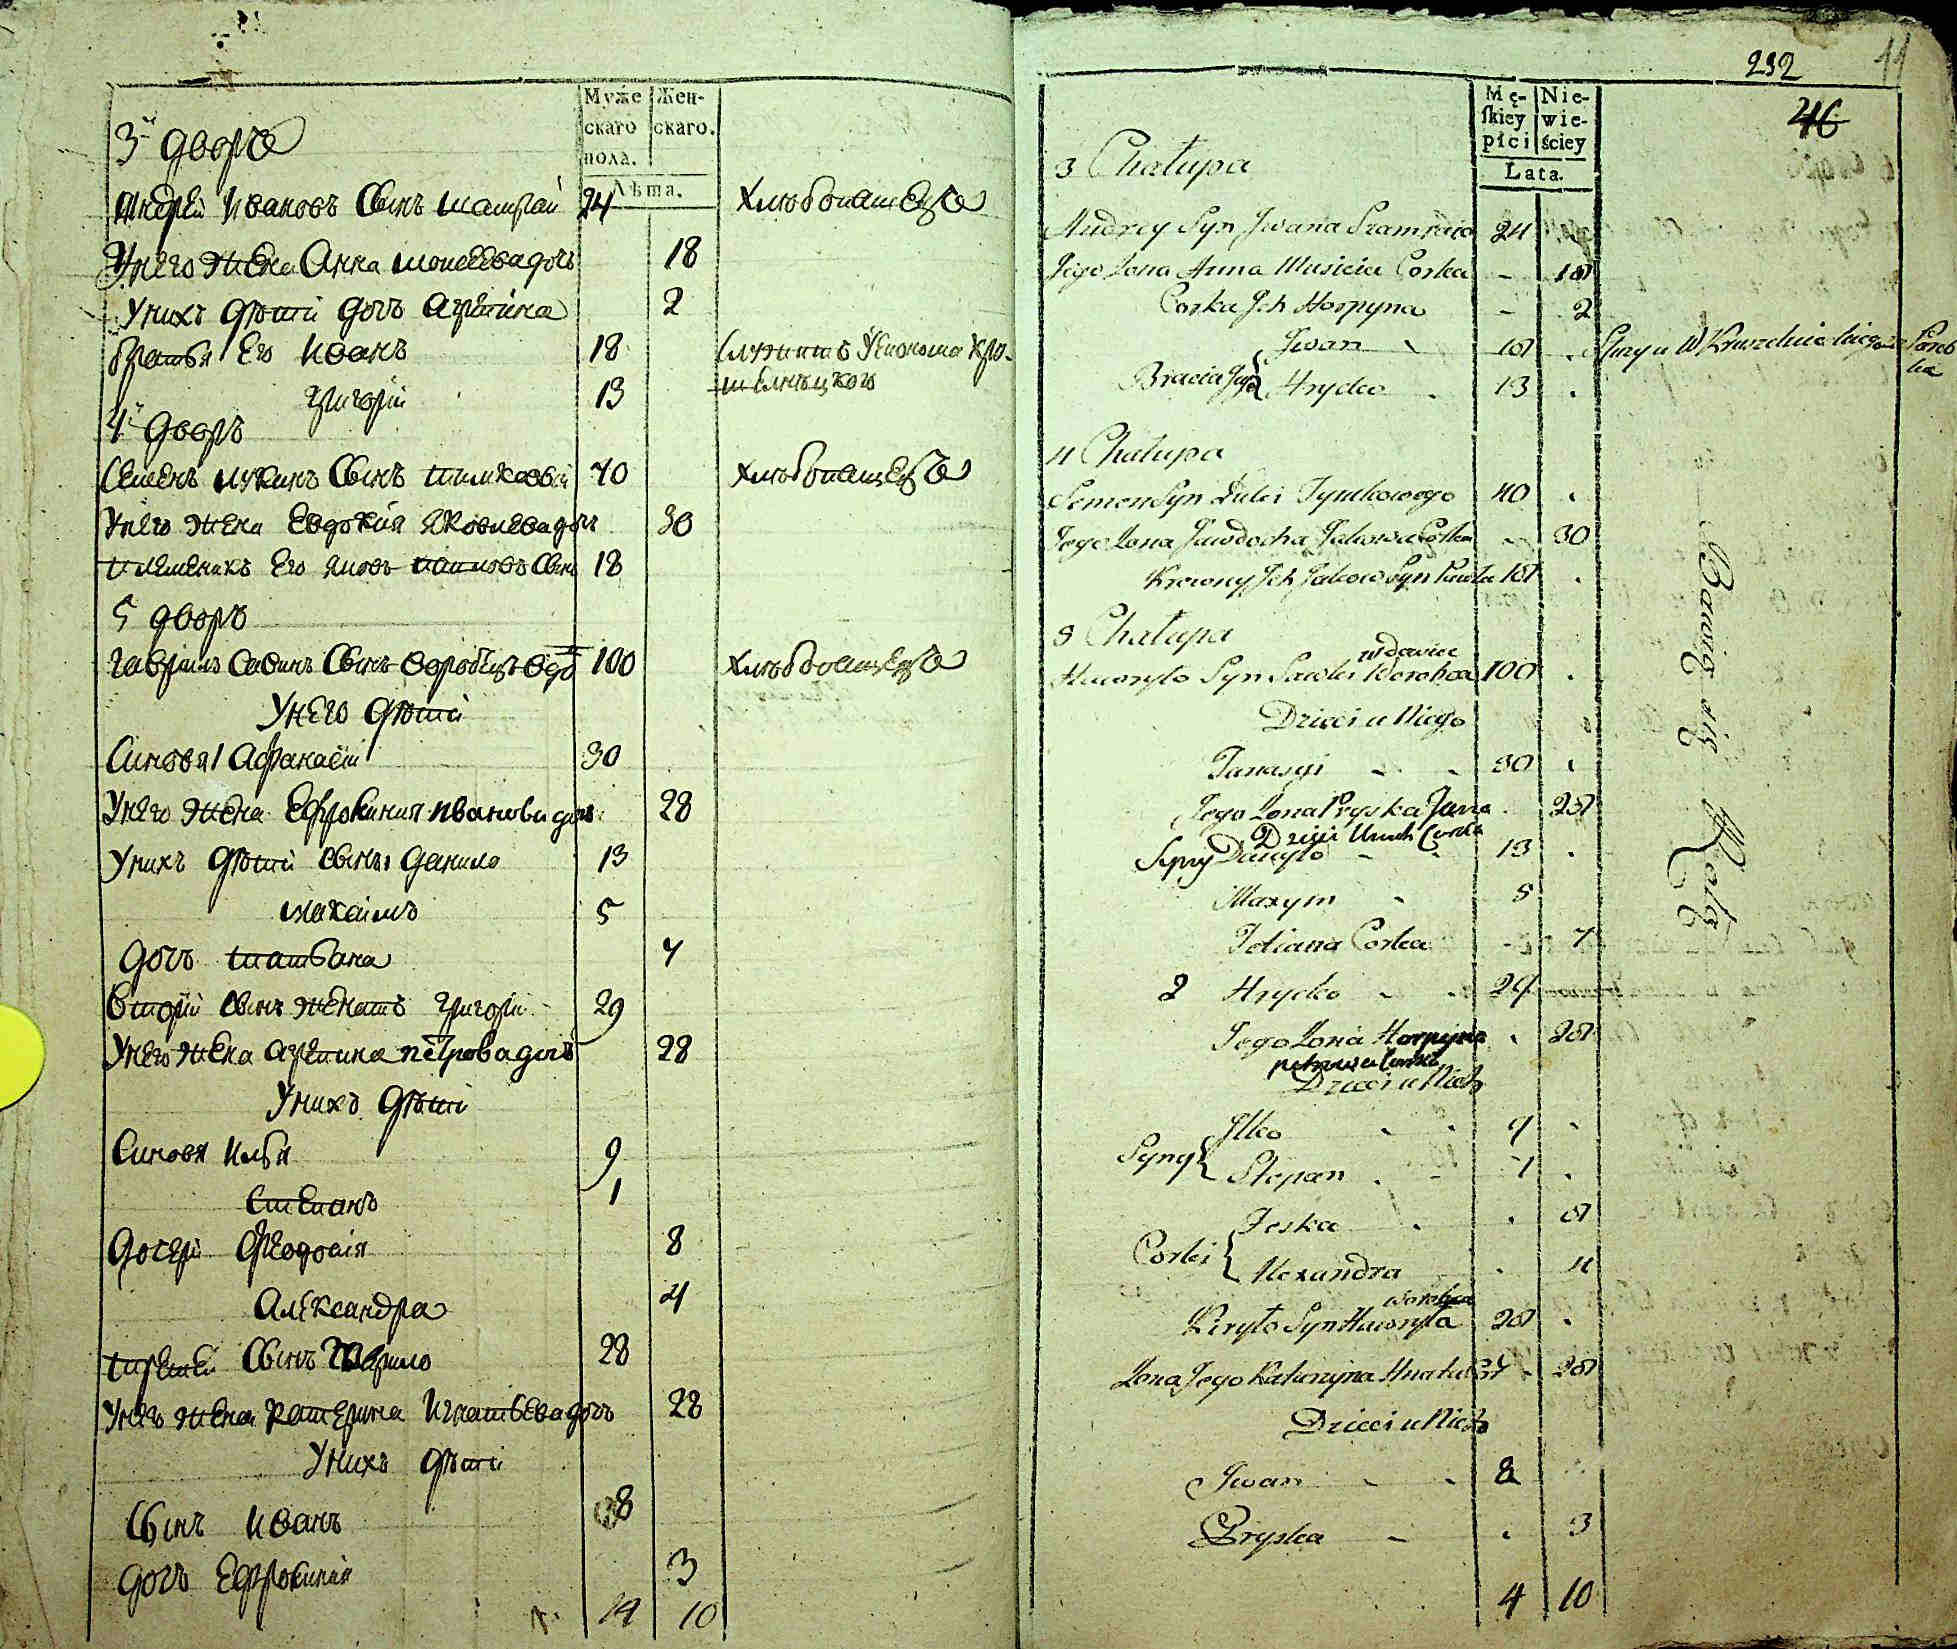 Муже
скаго
пола.
Жен-
скаго.
Лѣта.
3й дворъ
Андрей Ивановъ Сынъ 24 Хлѣбопашецъ
У него жена Анна Моисеева дочь 18
У нихъ дѣти дочь Агрепина 2
братья Его Иванъ 18 Служитъ У Економа
Григорiй 13
4й дворъ
Семенъ Лукинъ Сынъ Тимковый 40 Хлѣбопашецъ
У него жена Евдокiя Яковлева дочь 30
племеникъ Его Яковъ Павловъ Сынъ 18
5 дворъ
Гаврило Савинъ Сынъ Воробецъ вдо 100 Хлѣбопашецъ
У него дѣти
Синовя 1 Афанасiй 30
У него жена Ефросиния Иванова дочь 28
У нихъ дѣти сыны Данило 13
Макаимъ 5
дочь татьяна 7
Вторiй сынъ женатъ Григорiй 29
У него жена агрепина петрова дочь 28
У нихъ дѣти
Синовя Илья 9
Степанъ 1
Дочери Феодосiя 8
Александра 4
третей Сынъ Кирило 28
У него жена Катерина Игнатьева дочь 28
У нихъ дѣти
Сынъ Иванъ 8
дочь Ефросинiя 3
14 10
232
11
46
Mę-
skiey
płci
Nie-
wie-
ściey
Lata.
3 Chałupa
Andrey Syn Jwana 24
Jego Zona Anna Musieia Corka - 18
Corka Jch Horpyna - 2
Jwan 18 Służy u W
Bracia Jego Hryćko 13
4 Chałupa
Semen Syn Łuki Tymkowego 40
Jego Zona Jawdocha Jakowa Corka - 30
Krewny Jch Jakow Syn Pawła 18
5 Chałupa
wdowiec
Hawryło Syn Sawki Worobca 100
Dzieci u Niego
Panasyi 30
Jego Zona Pryska Jwana 28
Dzieci Unich Corka
Syny Danyło 13
Maxym 5
Tetiana Corka 7
2 Hryćko 29
Jego Zona Horpyna 28
petrowa Corka
Dzieci u Nich
Jlko 9
Syny Stepan 1
Feska 8
Corki Alexandra 4
Worobca
Kiryło Syn Hawryła 28
Zona Jego Katarzyna Hnata - 28
Dzieci u Nich
Jwan 8
Pryska 3
4 10
Bawią się Rolą